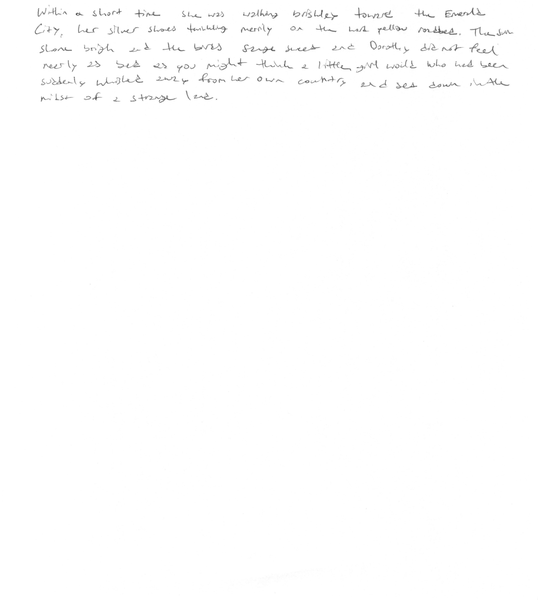 Within a short time she was walking briskley toward the Emerald
City, her silver shoes tinkling merrily on the hard yellow roadbed. The sun
shone brigh and the birds sange sweet and Dorothy did not feel
neerly as bad as you might think a little girl would who had been
suddenly whisked away from her own country and set down in the
midst of a strange land.